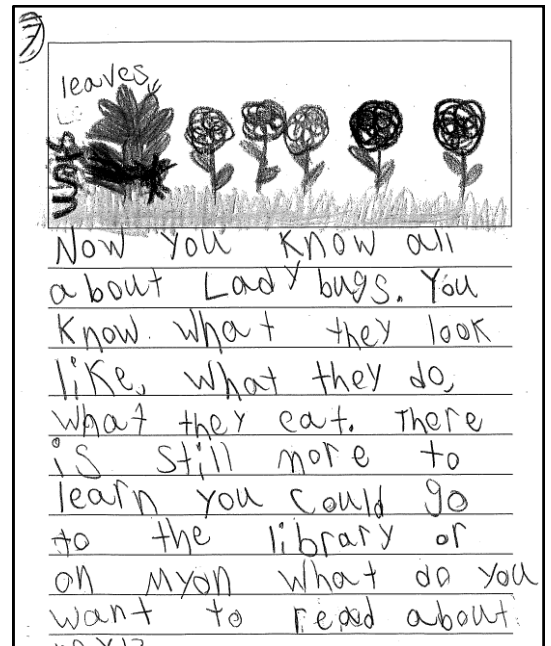 7
leaves
Now you know all
about Lady bugs. You
know what they look
like, what they do,
what they eat. There
is still more to
learn you could go
to the library or
on Myon what do you
want to read about